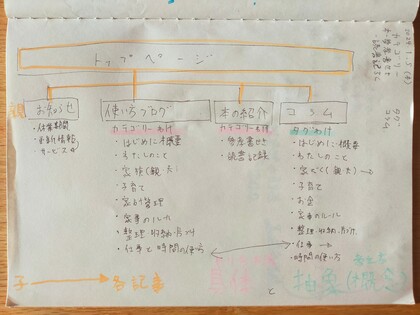 トップページ
2024.1.5(金)
カテゴリー
タグ
コラム
親
お知らせ
・休業期間
・更新情報
・サービス
使い方ブログ
カテゴリーわけ
・はじめに・概要
・わたしのこと
・家族(親・夫)
・子育て
・家計管理
・家事のルール
・整理収納・片付け
・仕事と時間の使い方
本の紹介
カテゴリーわけ
・読書記録
コラム
タグわけ
・はじめに・概要
・わたしのこと
・子育て
・お金
・家事のルール
・整理収納・片付け
・仕事
・時間の使い方
子
各記事
具体
抽象
と